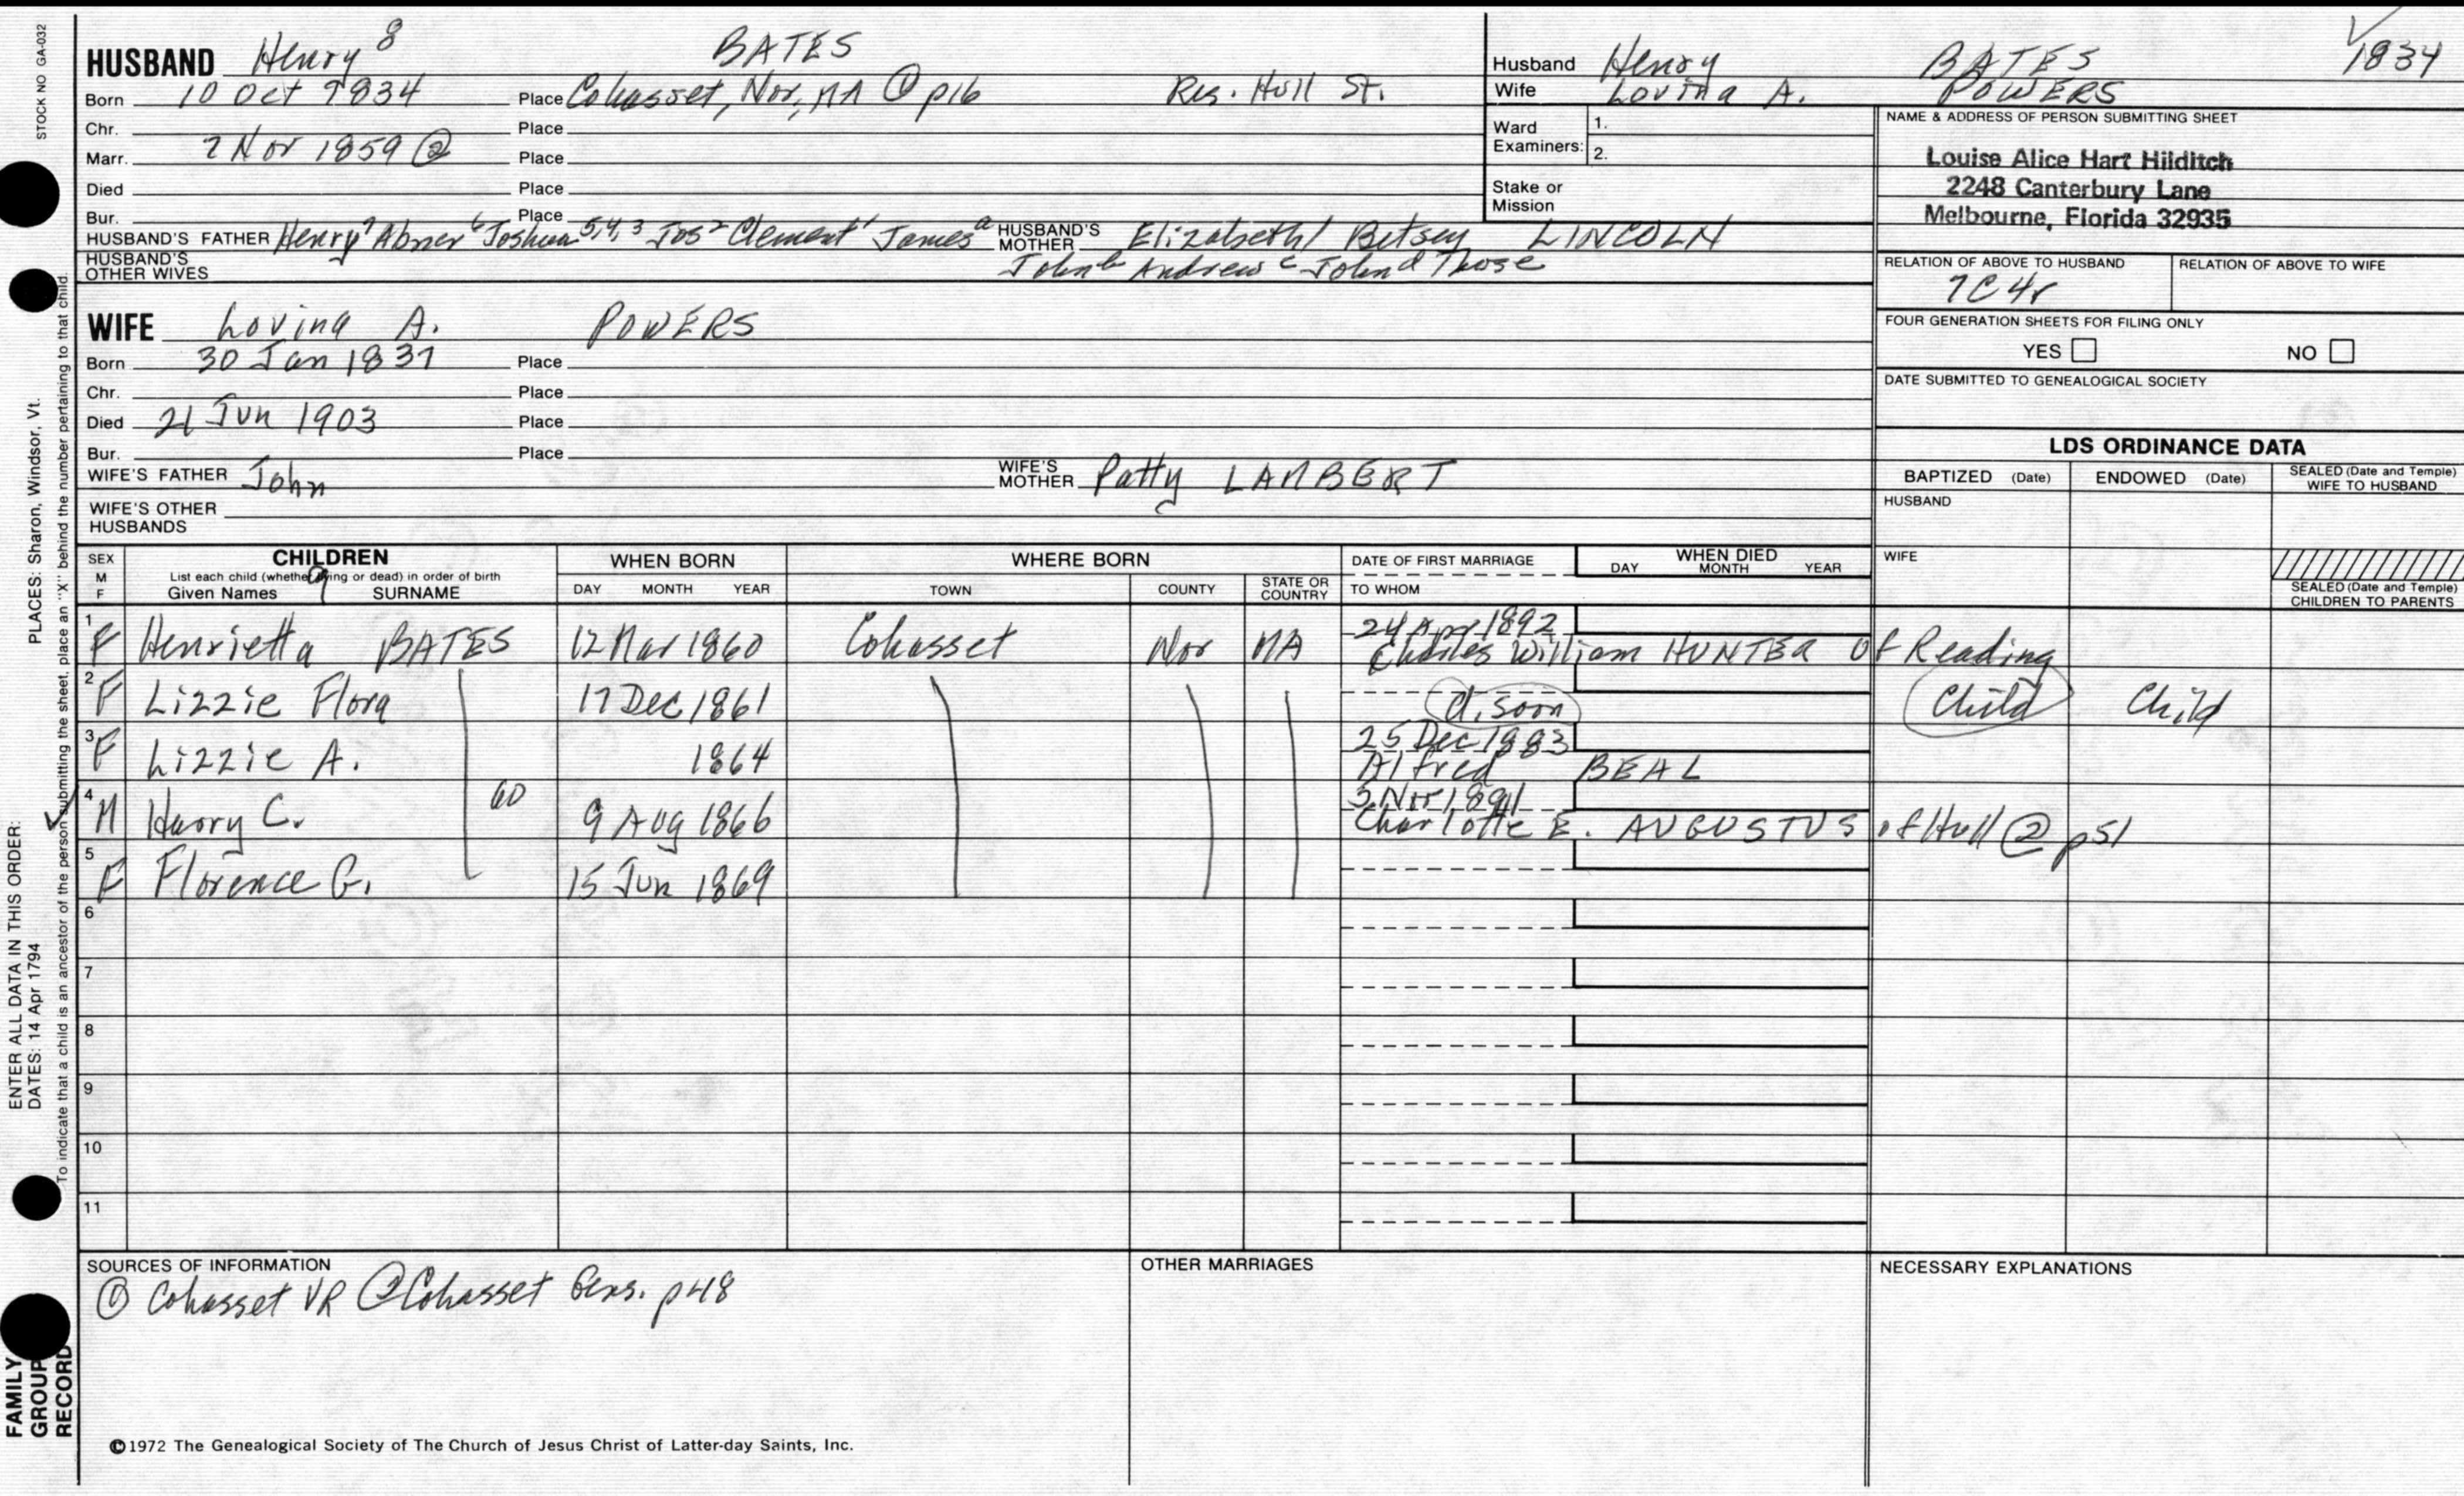 STOCK NO GA-032
HUSBAND Henry 8 BATES
Born 10 Oct 1834 Place Cohasset, Nor, MA ① p16 Res. Hull St.
Chr. Place
Marr. 2 Nov 1859 ② Place
Died Place
Bur. Place
HUSBAND'S FATHER Henry7 Abner6 Joshua5,4,3 Jos2 Clement1 Jamesa HUSBAND'S MOTHER Elizabeth/ Betsey LINCOLN
HUSBAND'S OTHER WIVES Johnb Andrewc Johnd Thosе
WIFE Lovina A. POWERS
Born 30 Jan 1837 Place
Chr. Place
Died 21 Jun 1903 Place
Bur. Place
WIFE'S FATHER John WIFE'S MOTHER Patty LAMBERT
WIFE'S OTHER HUSBANDS
Husband Henry BATES 1834
Wife Lovina A. POWERS
Ward Examiners: 1.
2.
Stake or Mission
NAME & ADDRESS OF PERSON SUBMITTING SHEET
Louise Alice Hart Hilditch
2248 Canterbury Lane
Melbourne, Florida 32935
RELATION OF ABOVE TO HUSBAND RELATION OF ABOVE TO WIFE
7C4r
FOUR GENERATION SHEETS FOR FILING ONLY
YES NO
DATE SUBMITTED TO GENEALOGICAL SOCIETY
LDS ORDINANCE DATA
BAPTIZED (Date) ENDOWED (Date) SEALED (Date and Temple) WIFE TO HUSBAND
HUSBAND
WIFE
SEALED (Date and Temple) CHILDREN TO PARENTS
SEX M F
CHILDREN
List each child (whether living or dead) in order of birth
Given Names 9 SURNAME
WHEN BORN
DAY MONTH YEAR
WHERE BORN
TOWN COUNTY STATE OR COUNTRY
DATE OF FIRST MARRIAGE
TO WHOM
WHEN DIED
DAY MONTH YEAR
1 F Henrietta BATES 12 Mar 1860 Cohasset Nor MA 24 Apr 1892
Charles William HUNTER of Reading
2 F Lizzie Flora 17 Dec 1861 d. soon Child Child
3 F Lizzie A. 1864 25 Dec 1883
Alfred BEAL
4 M Harry C. 60 9 Aug 1866 3 Nov 1891
Charlotte E. AUGUSTUS of Hull ② p51
5 F Florence G. 15 Jun 1869
6
7
8
9
10
11
SOURCES OF INFORMATION
① Cohasset VR ② Cohasset Gens. p48
OTHER MARRIAGES
NECESSARY EXPLANATIONS
©1972 The Genealogical Society of The Church of Jesus Christ of Latter-day Saints, Inc.
FAMILY GROUP RECORD
ENTER ALL DATA IN THIS ORDER:
DATES: 14 Apr 1794 PLACES: Sharon, Windsor, Vt.
To indicate that a child is an ancestor of the person submitting the sheet, place an "X" behind the number pertaining to that child.